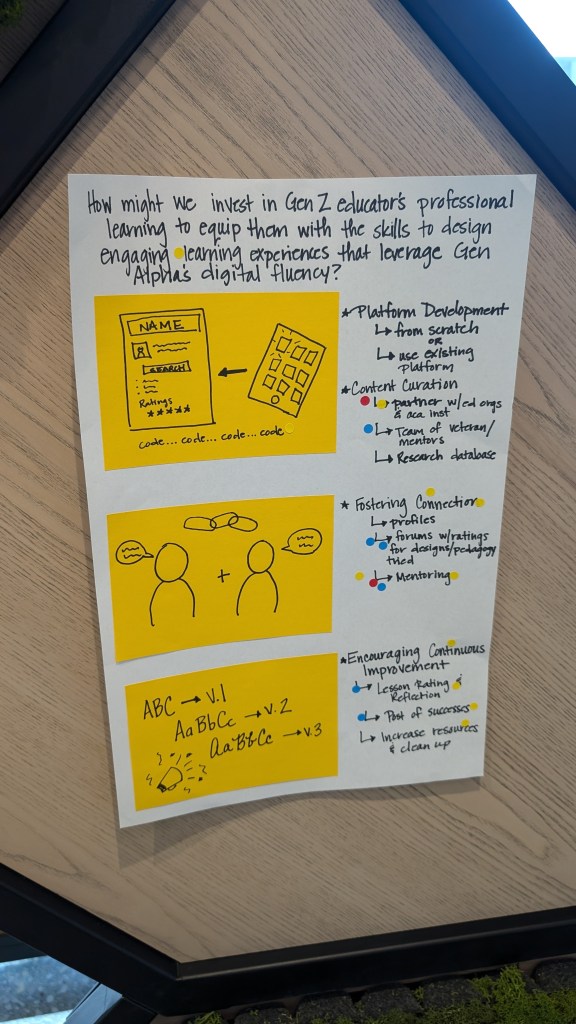 How might we invest in Gen Z educator's professional
learning to equip them with the skills to design
engaging learning experiences that leverage Gen
Alpha's digital fluency?
NAME
SEARCH
Ratings
★★★★★
code... code... code... code
★ Platform Development
↳ from scratch
OR
↳ use existing
platform
★ Content Curation
↳ partner w/ed orgs
& aca inst
↳ Team of veteran/
mentors
↳ Research database
★ Fostering Connection
↳ profiles
↳ forums w/ratings
for designs/pedagogy
tried
↳ Mentoring
+
ABC → V.1
AaBbCc → V.2
AaBbCc → V.3
★ Encouraging Continuous
Improvement
↳ Lesson Rating &
Reflection
↳ Post of successes
↳ Increase resources
& clean up